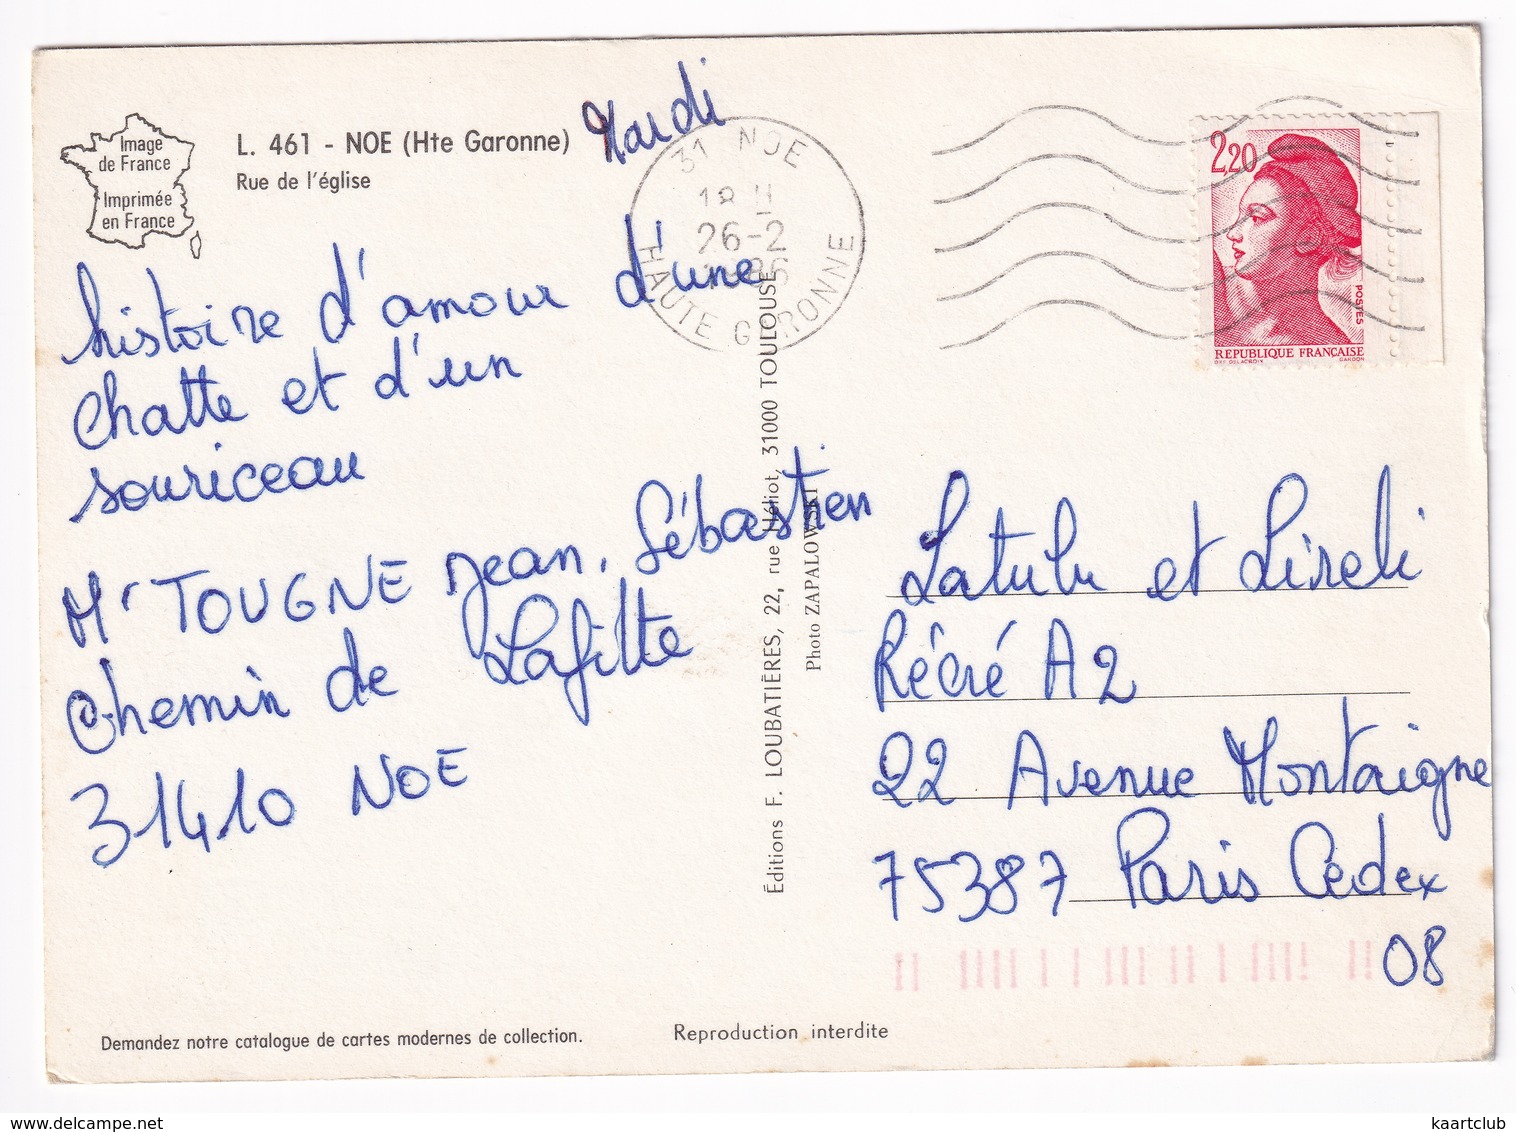 Image
de France
Imprimée
en France
L. 461 - NOE (Hte Garonne)
Rue de l'église
Mardi
31 NOE
18 H
26-2
1986
HAUTE GARONNE
2,20
POSTES
REPUBLIQUE FRANÇAISE
histoire d'amour d'une
chatte et d'un
souriceau
Mr TOUGNE Jean, Sébastien
Chemin de Lafitte
31410 NOE
Éditions F. LOUBATIÈRES, 22, rue Héliot, 31000 TOULOUSE
Photo ZAPALOWSKI
Latulu et Lireli
Récré A2
22 Avenue Montaigne
75387 Paris Cedex
08
Demandez notre catalogue de cartes modernes de collection.
Reproduction interdite
delcampe.net
kaartclub